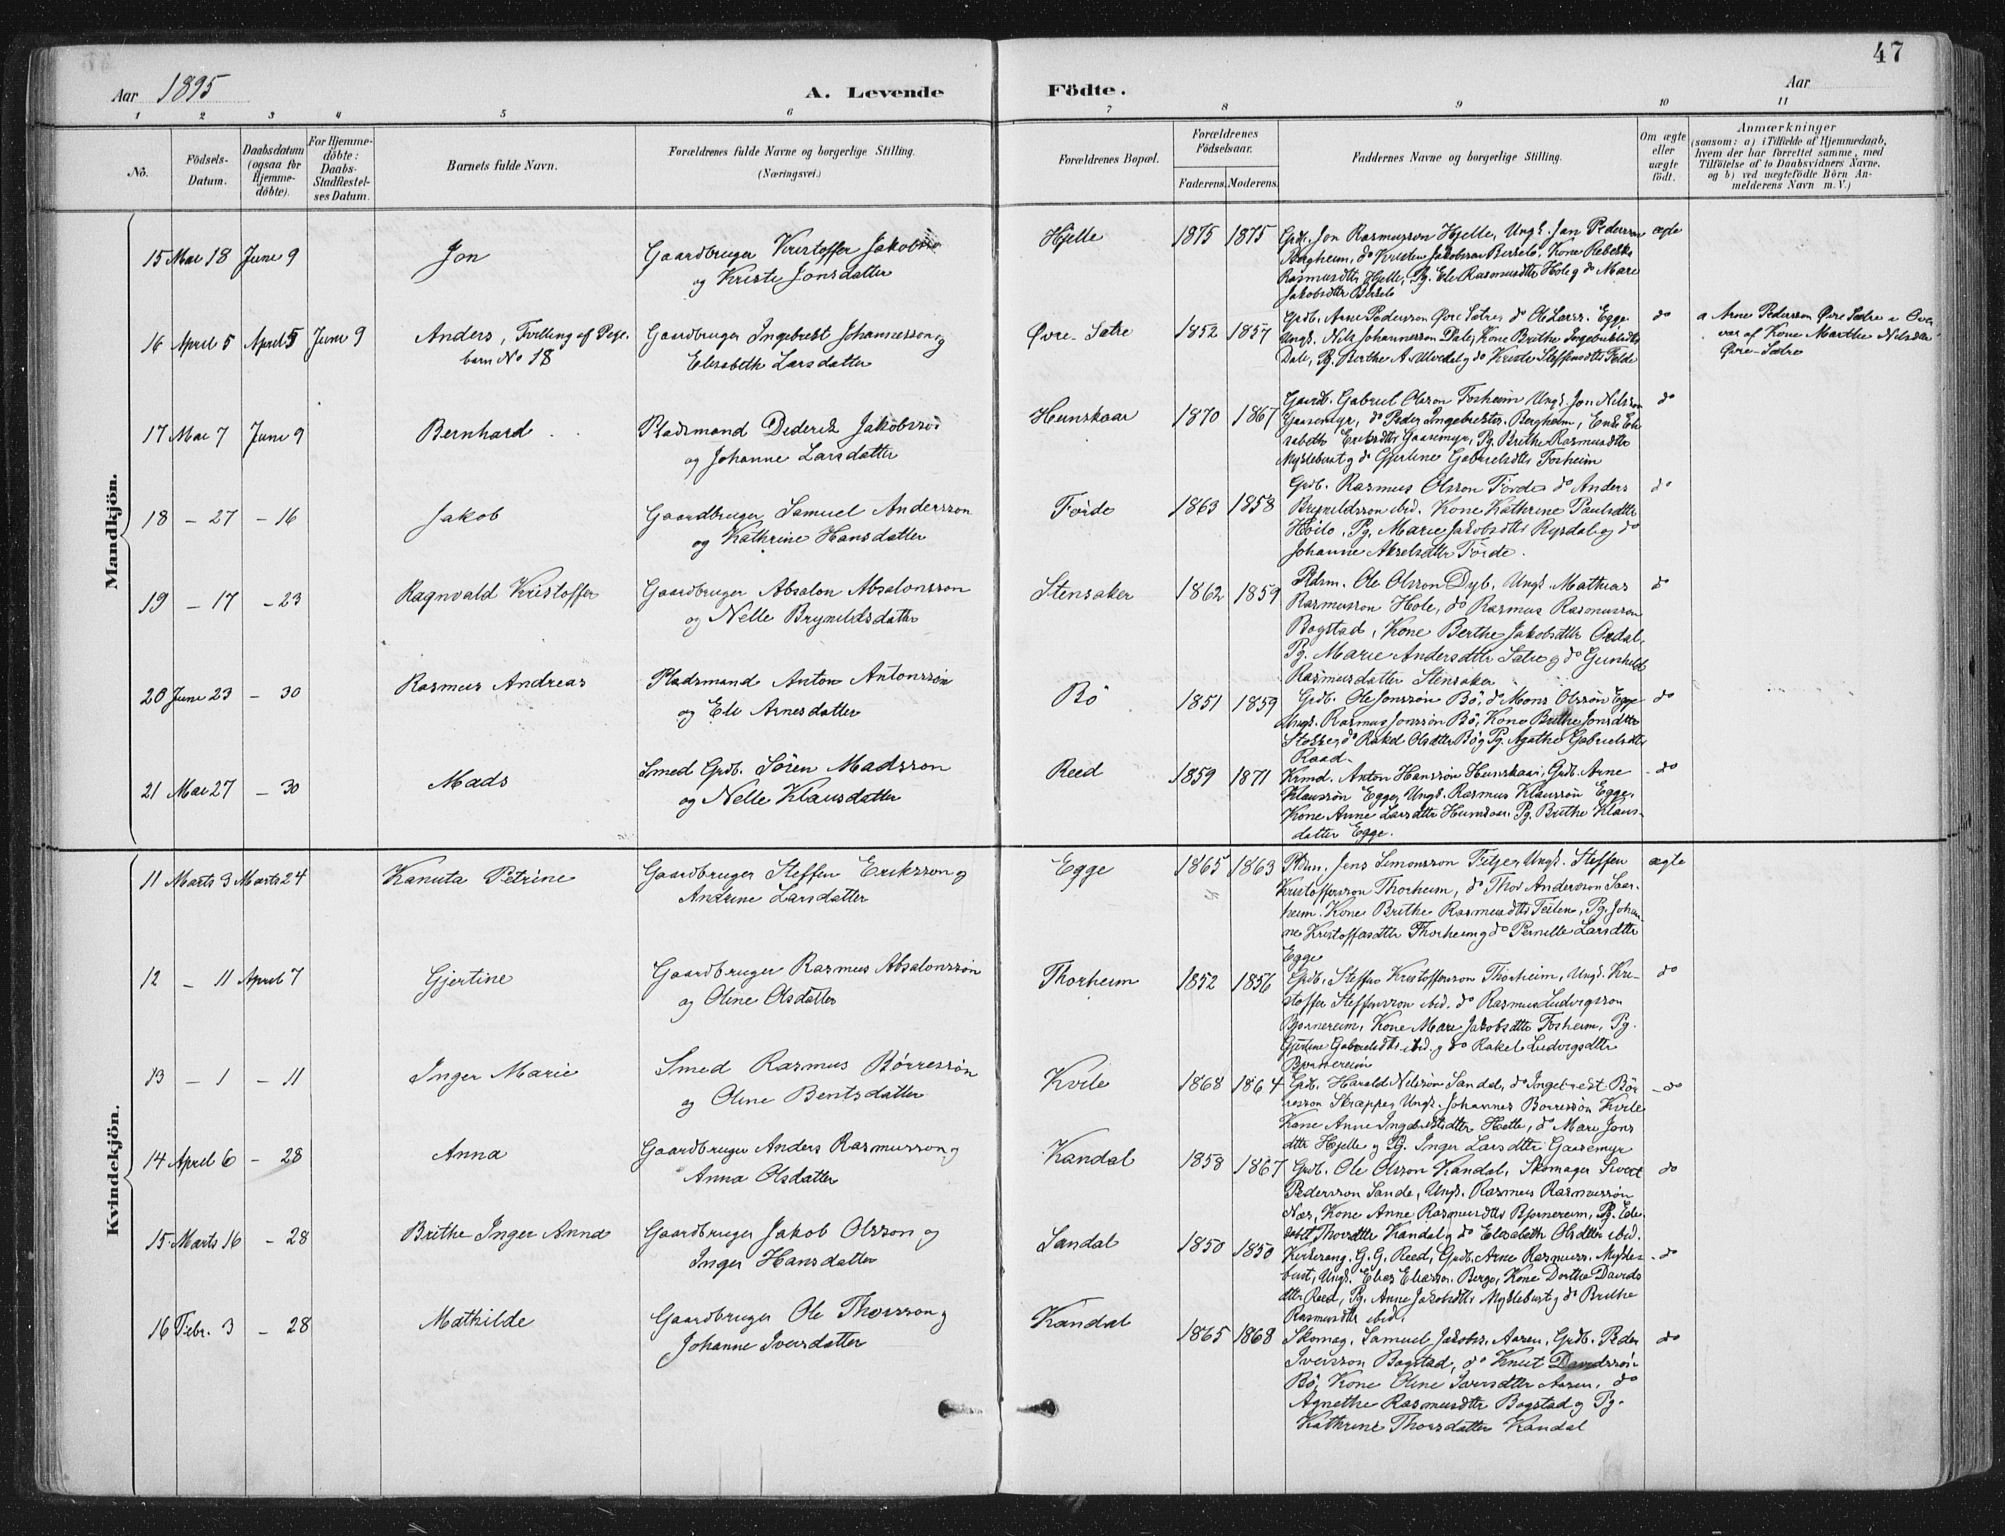 47
Aar 1895
A. Levende Födte.
Aar
1 2 3 4 5 6 7 8 9 10 11
No.
Födsels-Datum.
Daabsdatum (ogsaa for Hjemmedöbte).
For Hjemmedöbte: Daabs-Stadfæstelses Datum.
Barnets fulde Navn.
Forældrenes fulde Navne og borgerlige Stilling. (Næringsvei.)
Forældrenes Bopæl.
Forældrenes Födselsaar.
Faderens. Moderens.
Faddernes Navne og borgerlige Stilling.
Om ægte eller uægte födt.
Anmærkninger
(saasom: a) i Tilfælde af Hjemmedaab, hvem der har forrettet samme, med Tilföielse af to Daabsvidners Navne, og b) ved uægtefödte Börn Anmelderens Navn m. V.)
Mandkjön.
15 Mai 18 June 9 Jon Gaardbruger Kristoffer Jakobsen
og Kriste Jonsdatter
Hjelle 1875 1875 Grdb. Jon Rasmusson Hjelle, Ungk. Jan Pederson ægte
Bergheim, do Kristen Jakobson Berkelo, Kone Rebekka
Rasmusdtr Hjelle, Pg. Ele Rasmusdtr Hole og do Mari
Jakobsdtr
16 April 5 April 5 June 9 Anders, Tvilling af Pige-
barn No 18
Gaardbruger Ingebrikt Johannesson og
Elisabeth Larsdatter
Øvre-Sætre 1852 1857 Grdb. Arne Pedersson Øvre Sætre, do Ole Larss. Egge do
Ungk. Nils Johannesson Dale, Kone Brithe Ingebriktsdtr
Dale, Pg. Berthe A. Utvedal og do Kriste Steffensdtr Felde
a Arne Pedersson Øvre Sætre i Over
vær af Kone Marthe Nilsdtr
Øvre-Sætre
17 Mai 7 June 9 Bernhard Pladsmand Dederik Jakobsson
og Johanne Larsdatter
Hunskaar 1870 1867 Gaardb. Gabriel Olsson Fosheim Ungk. Jon Nilsson do
Gaasemyr, do Peder Ingebriktss. Bergheim, Enke Eli-
sabeth Eriksdtr Gaasemyr, Pg. Brithe Rasmusdtr
Myklebust og do Gjertine Gabrielsdtr Fosheim
18 - 27 - 16 Jakob Gaardbruger Samuel Andersson
og Kathrine Hansdatter
Førde 1863 1858 Grdb. Rasmus Olsson Førde do Anders do
Brynildsson ibid. Kone Kathrine Paulsdtr
Hoilo, Pg. Marie Jakobsdtr Rysdal og do
Johanne Akselsdtr Førde.
19 - 17 - 23 Ragnvald Kristoffer Gaardbruger Absalon Absalonsson
og Nelle Brynildsdatter
Stensaker 1862 1859 Pldsm. Ole Olsson Dyb, Ungk. Mathias do
Rasmusson Hole, do Rasmus Rasmusson
Bogstad, Kone Berthe Jakobsdtr Ordal,
Pg. Marie Andersdtr Sætre og do Gunhild
Rasmusdatter Stensaker
20 June 23 - 30 Rasmus Andreas Pladsmand Anton Antonssøn
og Ele Arnesdatter
Bö 1851 1859 Grdb. Ole Jonssøn Bö, do Mons Olssøn Egge do
Ungk. Rasmus Jonssøn Bö, Kone Brithe Jonsdtr
do Rakel Olsdtr Bö og Pg. Agathe Gabrielsdtr
Raad.
21 Mai 27 - 30 Mads Smed Grdb. Sören Madsson
og Nelle Klausdatter
Reed 1859 1871 Krmd. Anton Hanssøn Hunskaar, Grdb. Arne - do
Klaussøn Egge, Ungk. Rasmus Klaussøn Egge,
Kone Anne Larsdtr Hunskaar Pg. Brithe Klaus-
datter Egge.
Kvindekjön.
11 Marts 3 Marts 24 Kanuta Petrine Gaardbruger Steffen Eriksson og
Andrine Larsdatter
Egge 1865 1863 Pldsm. Jens Simonsson Fitje, Ungk. Steffen ægte
Kristoffersson Thorheim, do Thor Andersson Saar-
heim. Kone Brithe Rasmusdtr, Pg. Johan-
ne Kristoffersdtr Thorheim og do Pernille Larsdtr
Egge
12 - 11 April 7 Gjertine Gaardbruger Rasmus Absalonssøn
og Oline Olsdatter
Thorheim 1852 1856 Grdb. Steffen Kristoffersson Thorheim, Ungk. Kri- do
stoffer Steffensson ibid. do Rasmus Ludvigsson
Bjørnereim, Kone Mari Jakobsdtr Fosheim, Pg.
Gjertine Gabrielsdtr ibid. og do Rakel Ludvigsdtr
Bjørnereim
13 - 1 - 11 Inger Marie Smed Rasmus Børressøn
og Oline Bentsdatter
Kvile 1868 1864 Grdb. Harald Nilssøn Sandal, do Ingebrigt Bör- - do
resson Skrappe, Ungk. Johannes Borressøn Kvile
Kone Anne Ingebrigtsdtr, do Mari Jons
dtr Hjelle og Pg. Inger Larsdtr Gaasemyr
14 April 6 - 28 Anna Gaardbruger Anders Rasmusson og
Anna Olsdatter
Kandal 1858 1867 Grdb. Ole Olsson Kandal, Skomager Sivert do
Pedersson Sande, Ungk. Rasmus Rasmussøn
Næs, Kone Anne Rasmusdtr Bjørnereim, Pg. Eli-
sabet Thorsdtr Kandal og do Elisabeth Olsdtr ibid.
15 Marts 16 - 28 Brithe Inger Anna Gaardbruger Jakob Olsson og
Inger Hansdatter
Sandal 1850 1850 Kirkesang. G. G. Reed, Grdb. Arne Rasmuss. Mykle- - do
bust, Ungk. Elias Eliasson Berge, Kone Dorthe Davids
dtr Reed, Pg. Anne Jakobsdtr Myklebust og do Brithe
Rasmusdtr ibid.
16 Febr. 3 - 28 Mathilde Gaardbruger Ole Thorsson og
Johanne Iversdatter
Kandal 1865 1868 Skomag. Samuel Jakobs. Aasen, Grdb. Peder do
Iversson Bogstad, do Knut Davidssøn
Bö, Kone Oline Iversdtr Aasen, do
Agnethe Rasmusdtr Bogstad og Pg.
Kathrine Thorsdatter Kandal